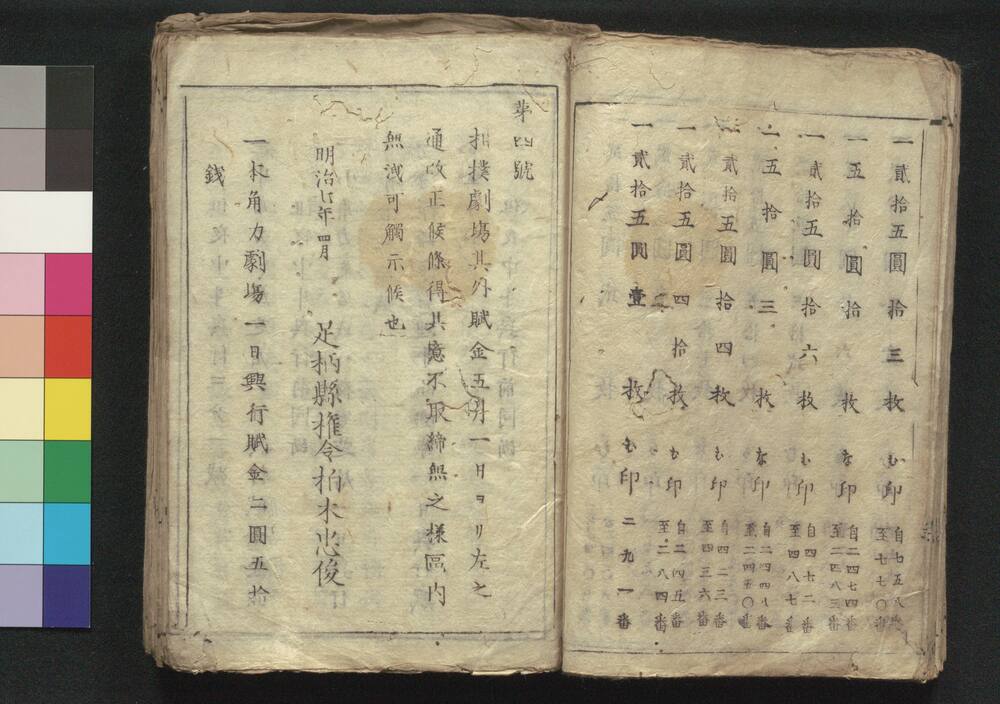 一貳拾五圓拾三枚 む印 自七五八番 至七七〇番
一五拾圓拾枚 な印 自二四七四番 至二四八三番
一貳拾五圓拾六枚 む印 自四七二番 至四八七番
一五拾圓三枚 な印 自二四四八番 至二四五〇番
一貳拾五圓拾四枚 む印 自四二三番 至四三六番
一貳拾五圓四拾枚 む印 自二四五番 至二八四番
一貳拾五圓壹枚 む印 二九一番
第四號
相撲劇場其外賦金五月一日ヨリ左之
通改正候條得其意不取締無之様區内
無洩可觸示候也
明治七年四月 足柄縣権令柏木忠俊
一本角力劇場一日興行賦金二圓五拾
錢